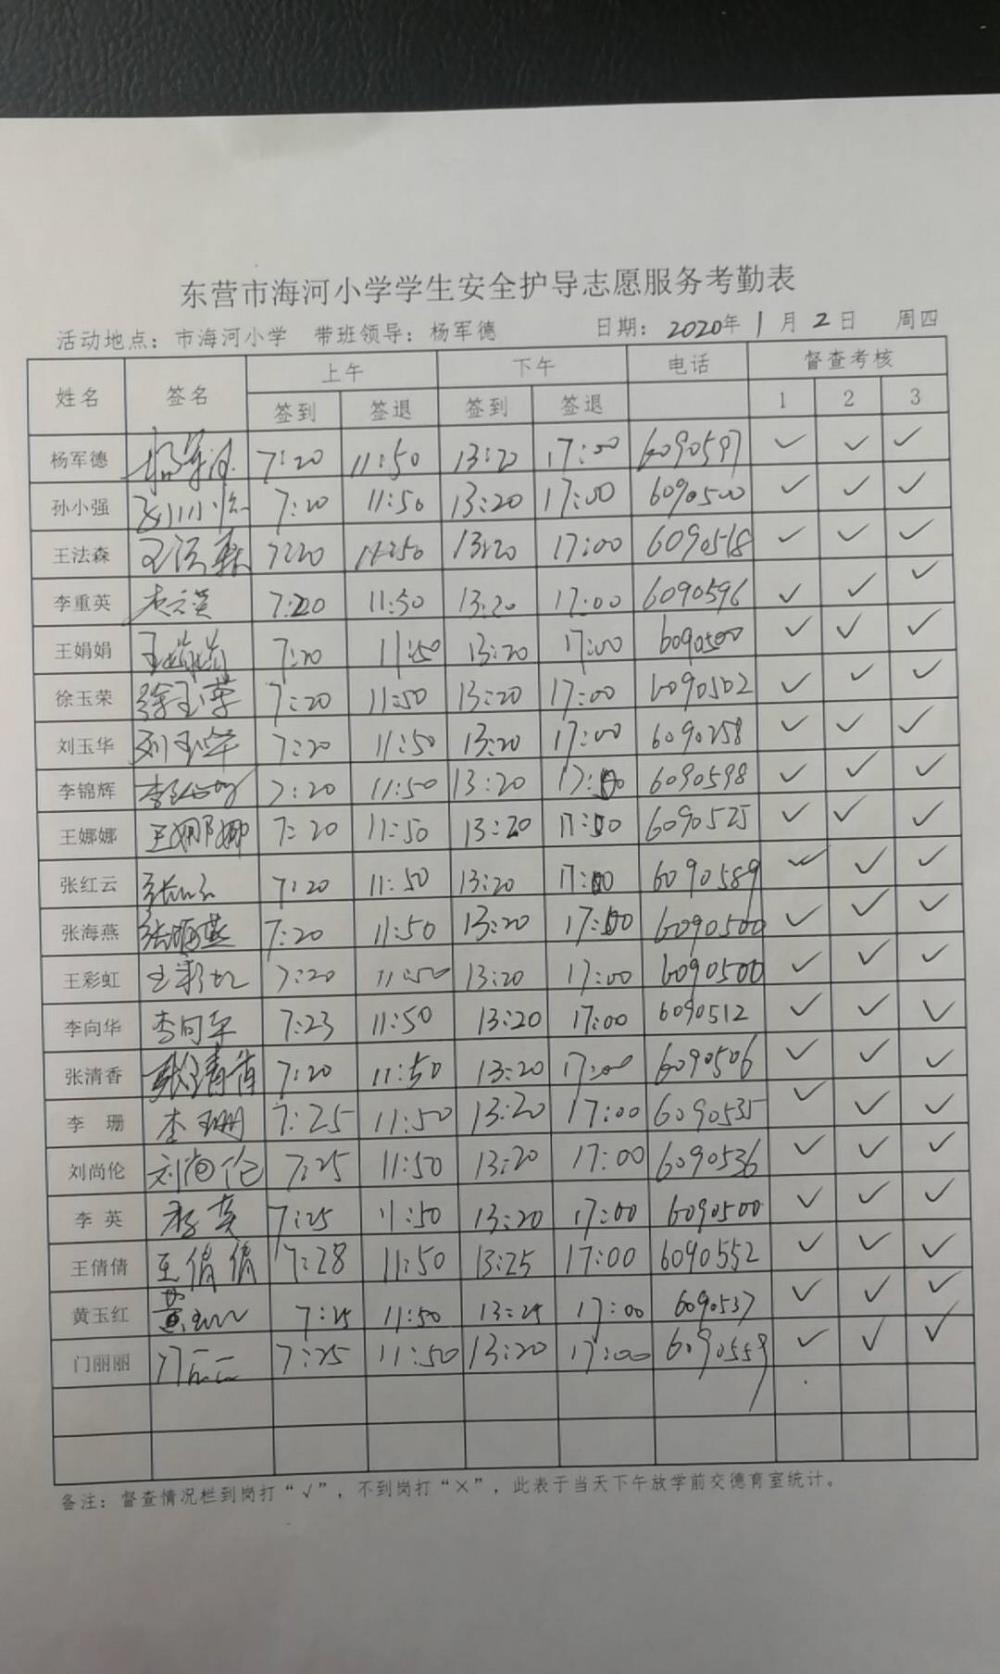 东营市海河小学学生安全护导志愿服务考勤表
活动地点：市海河小学 带班领导：杨军德 日期：2020年1月2日 周四
姓名 签名 上午 下午 电话 督查考核
签到 签退 签到 签退 1 2 3
杨军德 杨军德 7:20 11:50 13:20 17:00 6090597 ✓ ✓ ✓
孙小强 孙小强 7:20 11:50 13:20 17:00 6090500 ✓ ✓ ✓
王法森 王法森 7:20 11:50 13:20 17:00 6090518 ✓ ✓ ✓
李重英 李重英 7:20 11:50 13:20 17:00 6090596 ✓ ✓ ✓
王娟娟 王娟娟 7:20 11:50 13:20 17:00 6090500 ✓ ✓ ✓
徐玉荣 徐玉荣 7:20 11:50 13:20 17:00 6090502 ✓ ✓ ✓
刘玉华 刘玉华 7:20 11:50 13:20 17:00 6090258 ✓ ✓ ✓
李锦辉 李锦辉 7:20 11:50 13:20 17:00 6090598 ✓ ✓ ✓
王娜娜 王娜娜 7:20 11:50 13:20 17:00 6090525 ✓ ✓ ✓
张红云 张红云 7:20 11:50 13:20 17:00 6090589 ✓ ✓ ✓
张海燕 张海燕 7:20 11:50 13:20 17:00 6090500 ✓ ✓ ✓
王彩虹 王彩虹 7:20 11:50 13:20 17:00 6090500 ✓ ✓ ✓
李向华 李向华 7:23 11:50 13:20 17:00 6090512 ✓ ✓ ✓
张清香 张清香 7:20 11:50 13:20 17:00 6090506 ✓ ✓ ✓
李 珊 李珊 7:25 11:50 13:20 17:00 6090535 ✓ ✓ ✓
刘尚伦 刘尚伦 7:25 11:50 13:20 17:00 6090536 ✓ ✓ ✓
李 英 李英 7:25 11:50 13:20 17:00 6090500 ✓ ✓ ✓
王倩倩 王倩倩 7:28 11:50 13:25 17:00 6090552 ✓ ✓ ✓
黄玉红 黄玉红 7:25 11:50 13:25 17:00 6090537 ✓ ✓ ✓
门丽丽 门丽丽 7:25 11:50 13:20 17:00 6090559 ✓ ✓ ✓
备注：督查情况栏到岗打“√”，不到岗打“×”，此表于当天下午放学前交德育室统计。